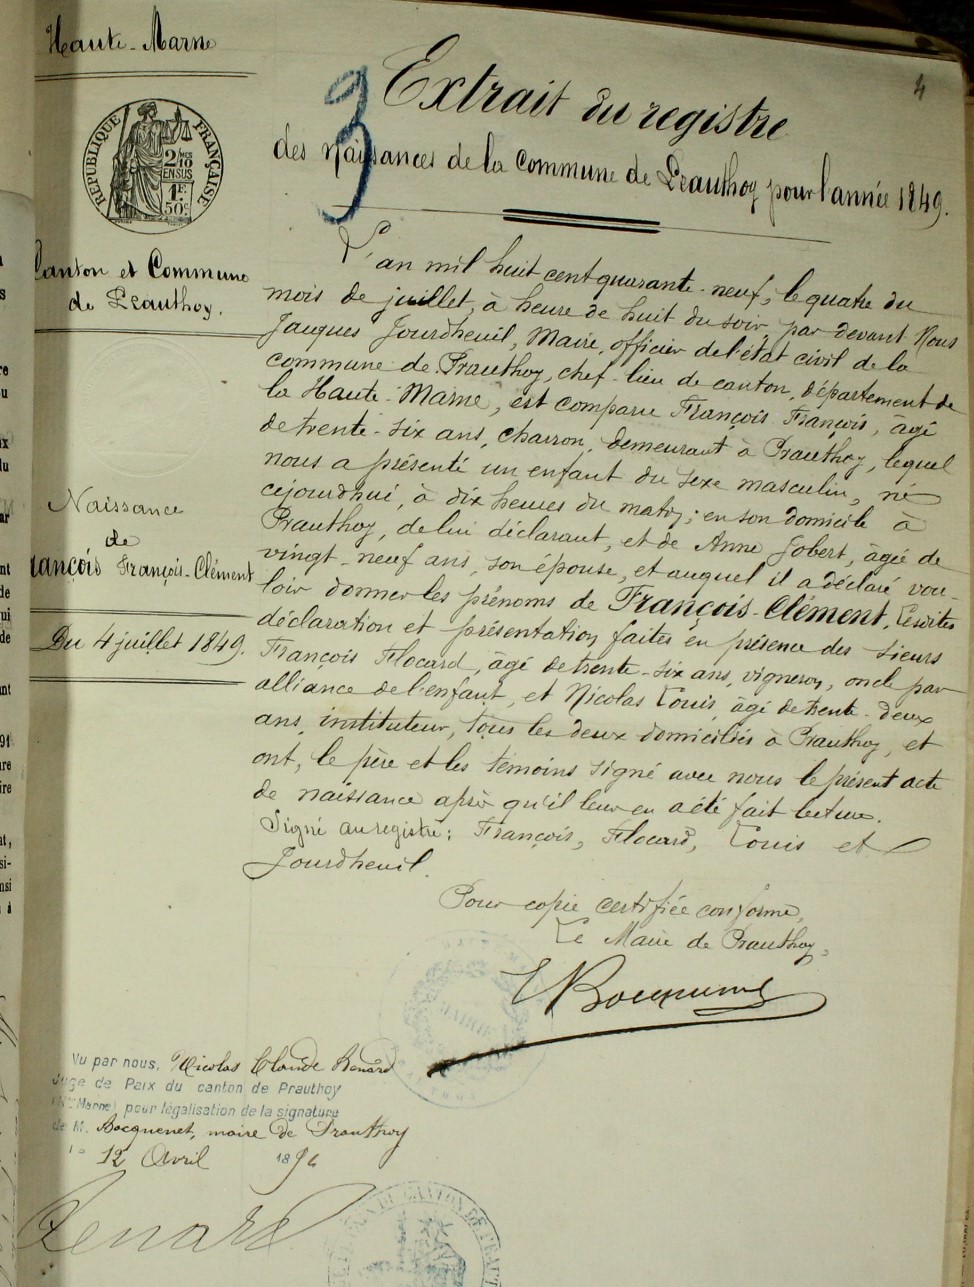 Haute-Marne
4
3
RÉPUBLIQUE FRANÇAISE
2/10 EN SUS
1F.
50c
Extrait du registre
des naissances de la Commune de Prauthoy pour l'année 1849.
Canton et Commune
de Prauthoy.
Naissance
de
François François-Clément
Du 4 juillet 1849.
L'an mil huit cent quarante-neuf, le quatre du
mois de juillet, à heure de huit du soir, par devant Nous
Jacques Jourdheuil, Maire, officier de l'état civil de la
commune de Prauthoy, chef-lieu de canton, département de
la Haute-Marne, est comparu François François, âgé
de trente-six ans, charron, demeurant à Prauthoy, lequel
nous a présenté un enfant du sexe masculin, né
cejourdhui, à dix heures du matin; en son domicile à
Prauthoy, de lui déclarant, et de Anne Jobert, âgée de
vingt-neuf ans, son épouse, et auquel il a déclaré vou-
loir donner les prénoms de François-Clément. Lesdites
déclaration et présentation faites en présence des sieurs
François Flocard, âgé de trente-six ans, vigneron, oncle par
alliance de l'enfant, et Nicolas Louis, âgé de trente-deux
ans, instituteur, tous les deux domiciliés à Prauthoy, et
ont, le père et les témoins signé avec nous le présent acte
de naissance après qu'il leur en a été fait lecture.
Signé au registre: François, Flocard, Louis et
Jourdheuil.
Pour copie certifiée conforme,
Le Maire de Prauthoy,
Bocquenet
MAIRIE
Vu par nous, Nicolas Claude Renard
Juge de Paix du canton de Prauthoy
(Hte Marne) pour légalisation de la signature
de M. Bocquenet, maire de Prauthoy
le 12 Avril 1894
Renard